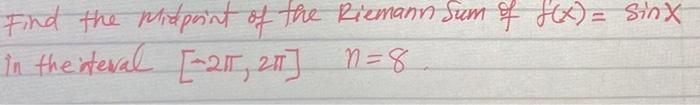 Find the Midpoint of the Riemann Sum of f(x) = sinx
in the iteval [-2π, 2π] n=8.